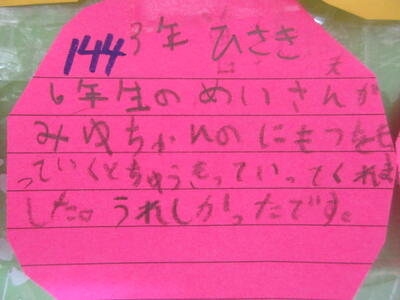 144 3年 ひさき
6年生のめいさんが
みゆちゃんのにもつをも
っていくとちゅうもっていってくれま
した。うれしかったです。